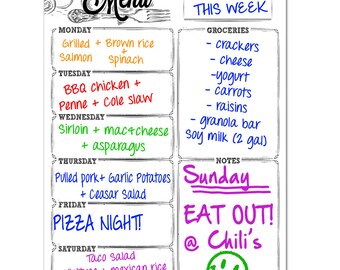 Menu
THIS WEEK
MONDAY
Grilled + Brown rice
salmon + spinach
TUESDAY
BBQ chicken +
Penne + Cole slaw
WEDNESDAY
Sirloin + mac+cheese
+ asparagus
THURSDAY
Pulled pork+ Garlic Potatoes
+ Ceasar Salad
FRIDAY
PIZZA NIGHT!
SATURDAY
Taco Salad
+ mexican rice
GROCERIES
- crackers
- cheese
-yogurt
- carrots
- raisins
- granola bar
Soy milk (2 gal)
NOTES
Sunday
EAT OUT!
@ Chili's